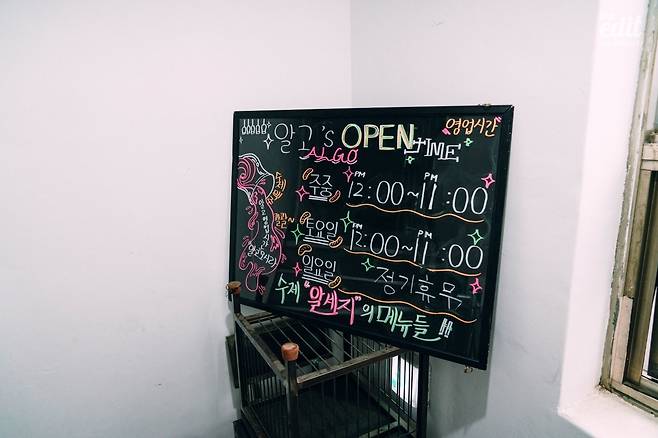 알고's OPEN TIME
ALGO
영업시간
주중 PM 12:00~ PM 11:00
토요일 PM 12:00~ PM 11:00
일요일 정기휴무
수제 "알세지"의 메뉴들!!
the edit